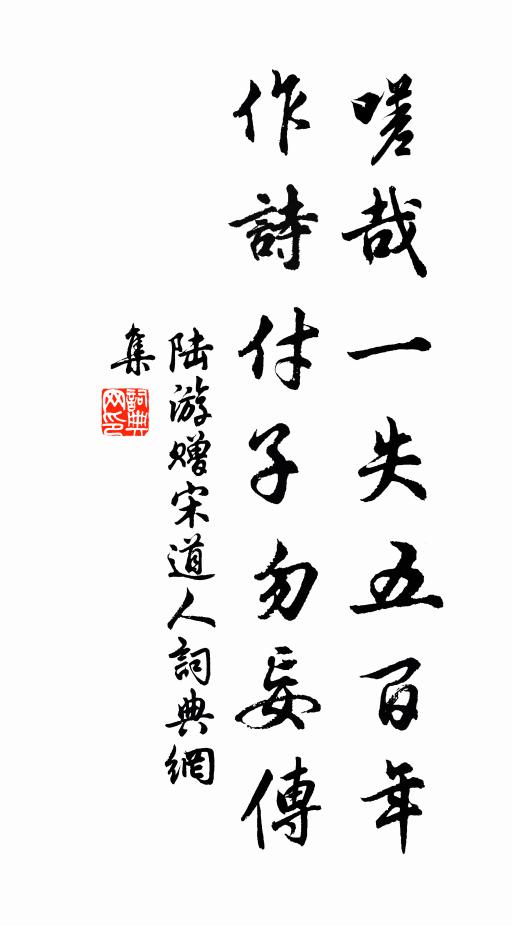 嗟哉一失五百年
作詩付子勿妄傳
陸游贈宋道人詞典網
集
詞典
网印